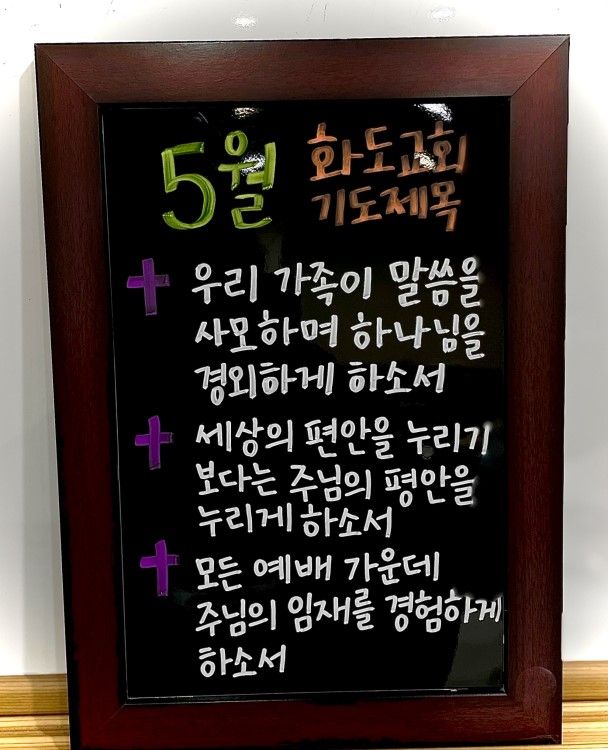 5월 화도교회
기도제목
우리 가족이 말씀을
사모하며 하나님을
경외하게 하소서
세상의 편안을 누리기
보다는 주님의 평안을
누리게 하소서
모든 예배 가운데
주님의 임재를 경험하게
하소서